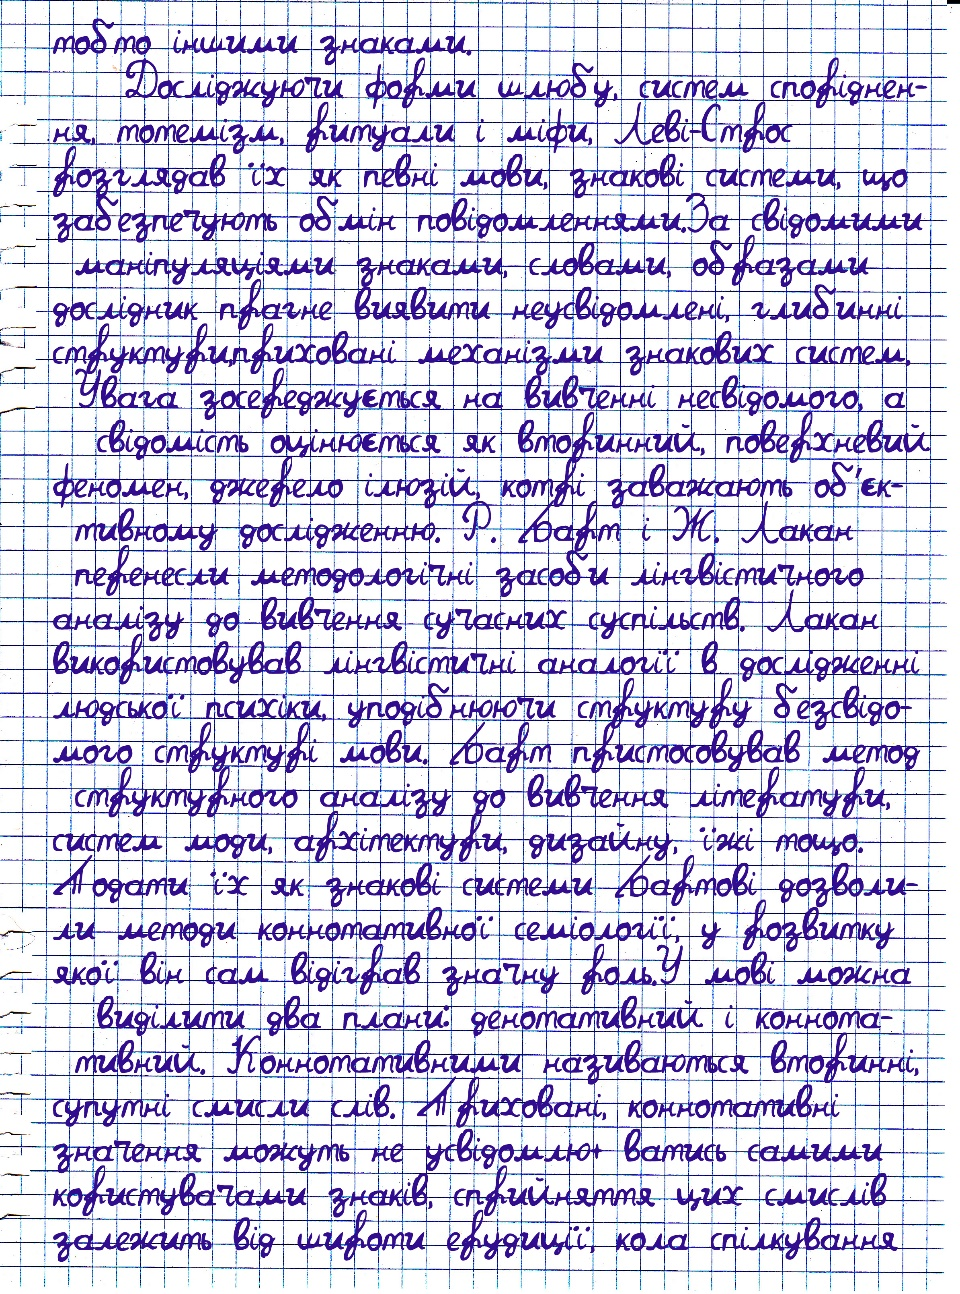 тобто іншими знаками.
Досліджуючи форми шлюбу, систем споріднен-
ня, тотемізм, ритуали і міфи, Леві-Строс
розглядав їх як певні мови, знакові системи, що
забезпечують обмін повідомленнями.За свідомими
маніпуляціями знаками, словами, образами
дослідник прагне виявити неусвідомлені, глибинні
структури,приховані механізми знакових систем.
Увага зосереджується на вивченні несвідомого, а
свідомість оцінюється як вторинний, поверхневий
феномен, джерело ілюзій, котрі заважають об'єк-
тивному дослідженню. Р. Барт і Ж. Лакан
перенесли методологічні засоби лінгвістичного
аналізу до вивчення сучасних суспільств. Лакан
використовував лінгвістичні аналогії в дослідженні
людської психіки, уподібнюючи структуру безсвідо-
мого структурі мови. Барт пристосовував метод
структурного аналізу до вивчення літератури,
систем моди, архітектури, дизайну, їжі тощо.
Подати їх як знакові системи Бартові дозволи-
ли методи коннотативної семіології, у розвитку
якої він сам відіграв значну роль.У мові можна
виділити два плани: денотативний і коннота-
тивний. Коннотативними називаються вторинні,
супутні смисли слів. Приховані, коннотативні
значення можуть не усвідомлю+ ватись самими
користувачами знаків, сприйняття цих смислів
залежить від широти ерудиції, кола спілкування